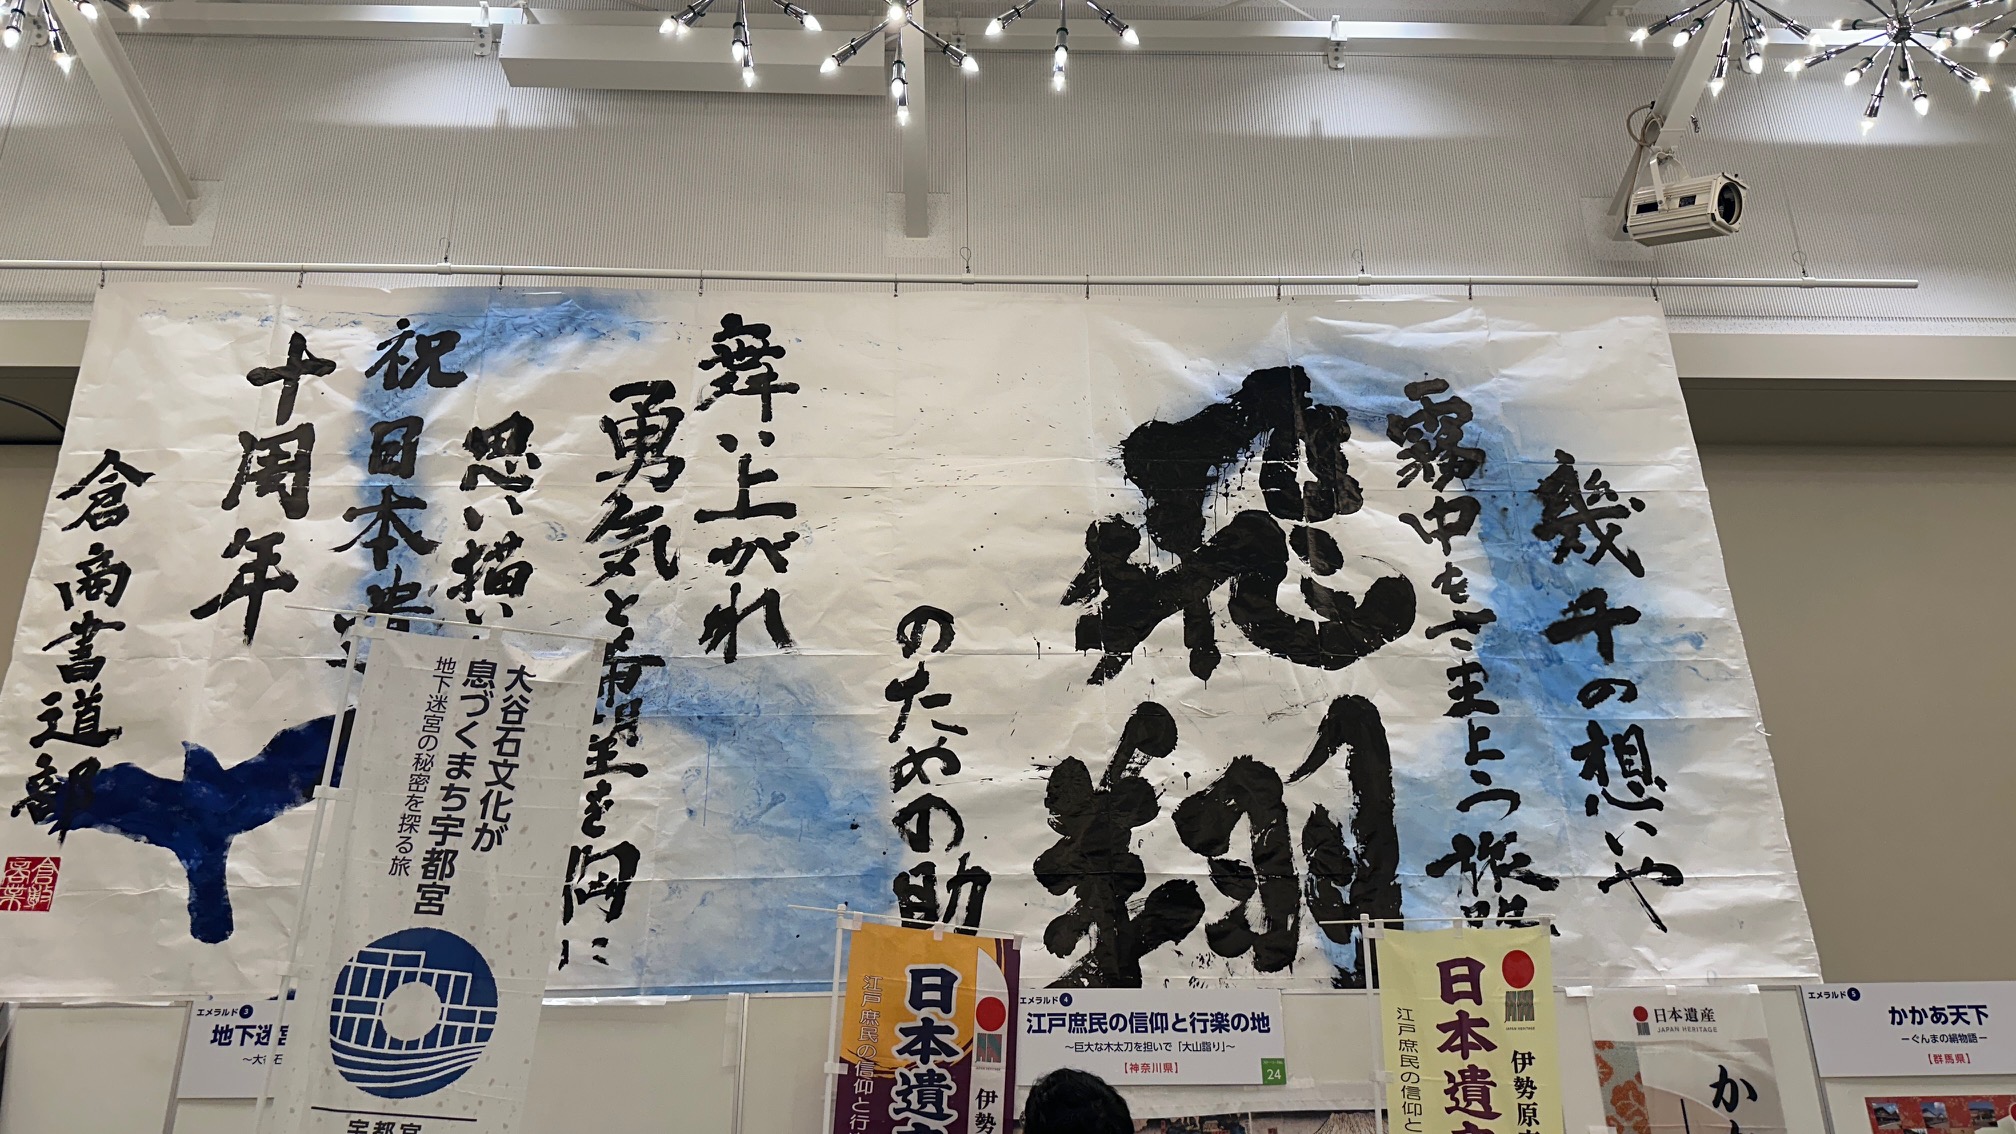 幾千の想いや
霧中をさまよう旅路
飛翔
のための助
舞い上がれ
勇気と希望を胸に
思い描い
祝日本遺
十周年
倉商書道部
大谷石文化が
息づくまち宇都宮
地下迷宮の秘密を探る旅
宇都宮
エメラルド3
地下迷宮
~大谷石
日本遺
江戸庶民の信仰と行楽
伊勢
エメラルド4
江戸庶民の信仰と行楽の地
~巨大な木太刀を担いで「大山詣り」~
【神奈川県】
24
日本遺
江戸庶民の信仰と
伊勢原
日本遺産
JAPAN HERITAGE
か
エメラルド5
かかあ天下
ーぐんまの絹物語ー
【群馬県】